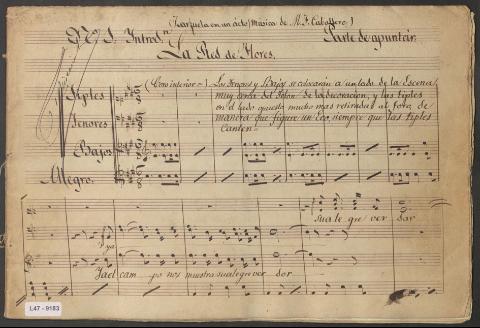 (Zarzuela en un acto) Musica de M. F. Caballero.)
Nº 1. Introdn.
Parte de apuntar.
La Red de Flores.
(Coro interior=) Los Tenores y Bajos se colocarán a un lado de la Escena
muy cerca del Telon de la decoracion, y las tiples
en el lado opuesto mucho mas retiradas al foro de
manera que figure un Eco, siempre que las tiples
canten=
Tiples
Tenores
Bajos
Allegro.
su ale gre ver dor
Y ya
Ya el cam po nos muestra su alegre ver dor
L47 - 9183